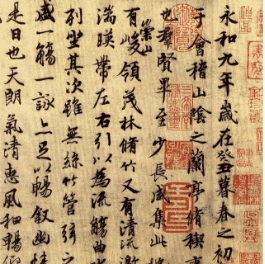 永和九年歲在癸丑暮春之初
于會稽山陰之蘭亭脩稧事
也群賢畢至少長咸集此
有崇山峻領茂林脩竹又有清流激
湍暎帶左右引以為流觴曲
列坐其次雖無絲竹管弦之
盛一觴一詠亦足以暢敘幽情
是日也天朗氣清惠風和暢仰